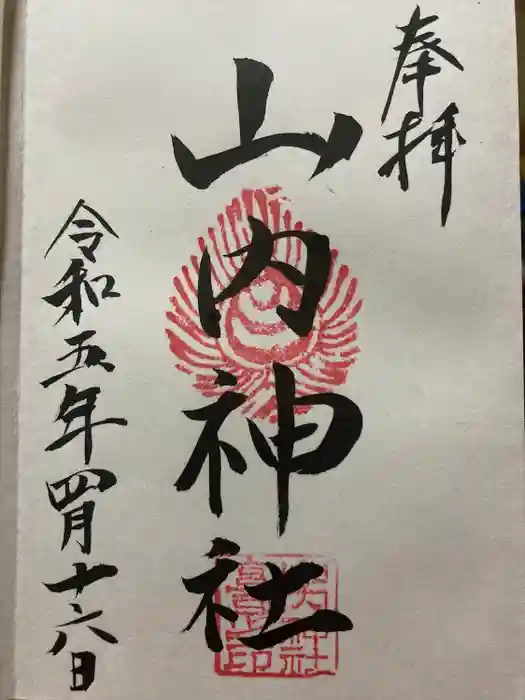 奉拝
山内神社
令和五年四月十六日